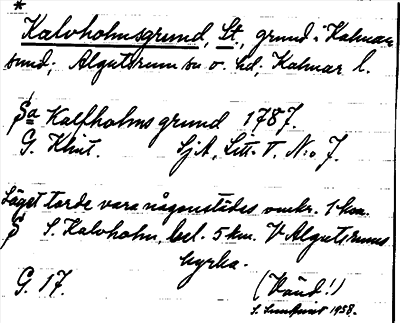 *
Kalvholmsgrund, St., grund i Kalmar
sund; Algutsrum sn o. hd; Kalmar l.
Sa Kalfholms grund 1787.
G. Klint. SjA, Litt. T. N:o 7.
Läget torde vara någonstädes omkr. 1 km.
S. Kalvholm, bel. 5 km. V Algutsrums
kyrka.
G. 17. (Händ!)
S. 1958.